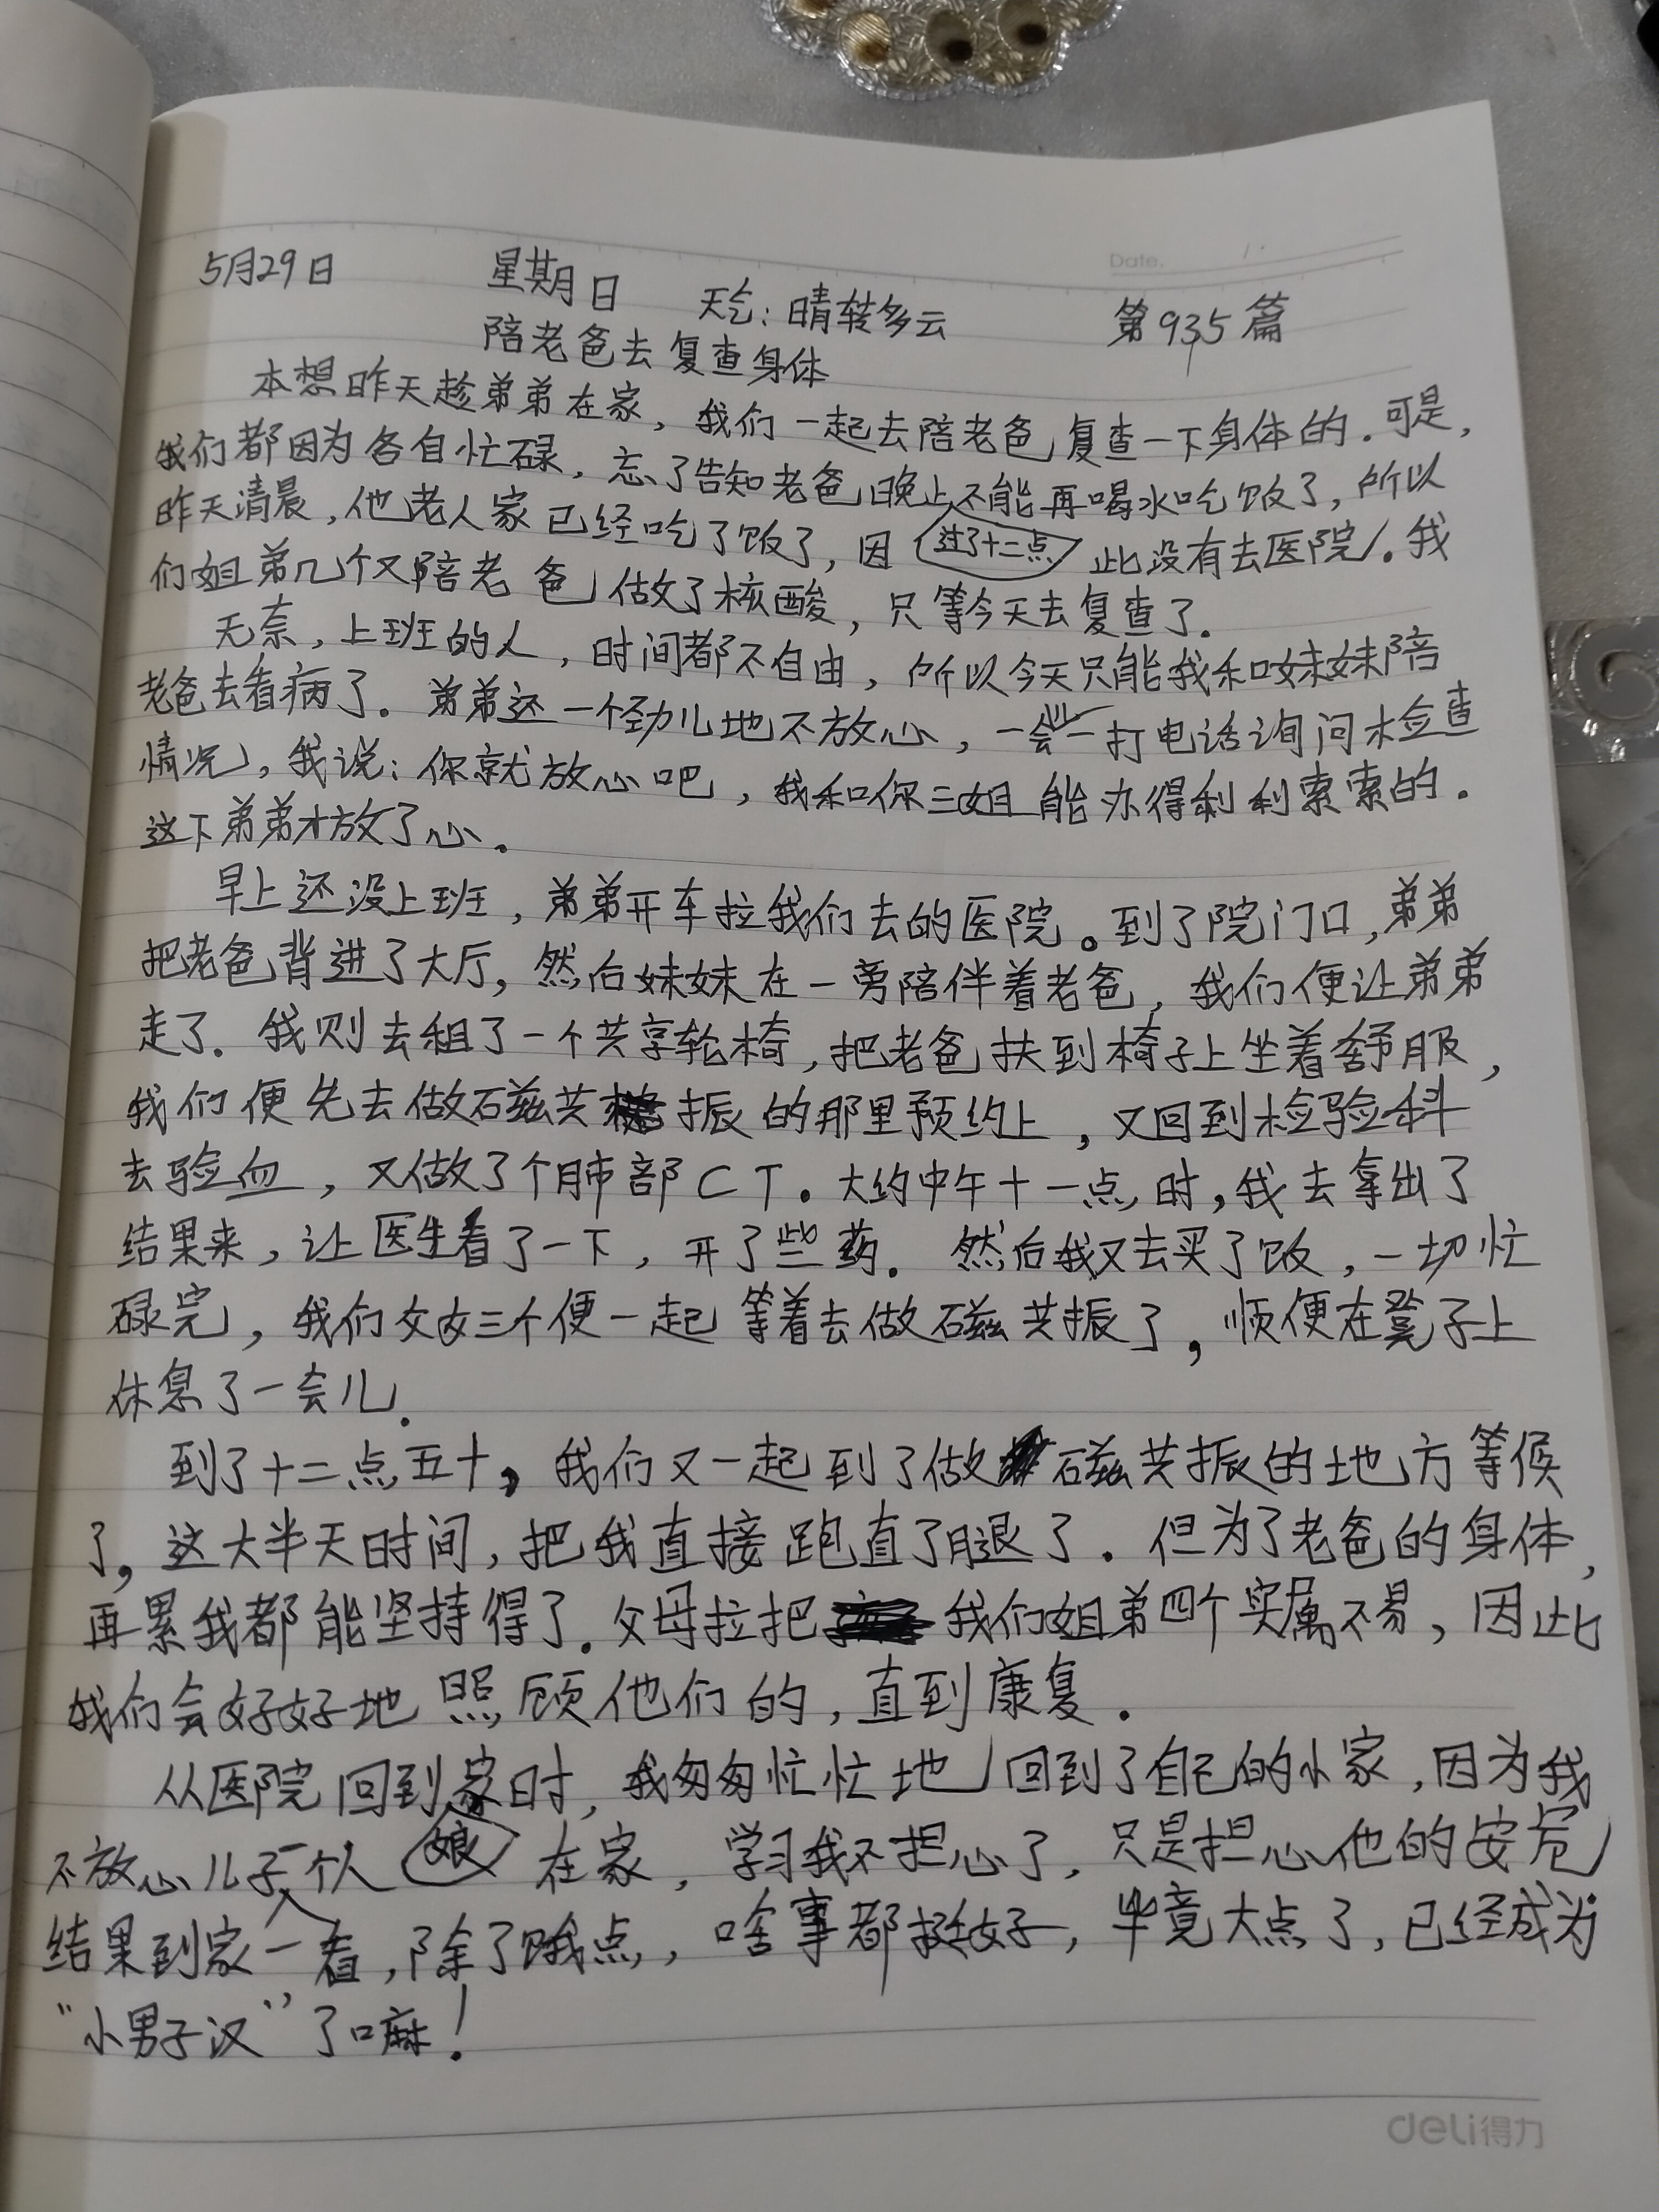 Date.
5月29日 星期日 天气：晴转多云 第935篇
陪老爸去复查身体
本想昨天趁弟弟在家，我们一起去陪老爸复查一下身体的.可是，
我们都因为各自忙碌，忘了告知老爸晚上不能再喝水吃饭了，所以
过了十二点
昨天清晨，他老人家已经吃了饭了，因此没有去医院.我
们姐弟几个又陪老爸做了核酸，只等今天去复查了.
无奈，上班的人，时间都不自由，所以今天只能我和妹妹陪
老爸去看病了.弟弟还一个劲儿地不放心，一会一打电话询问检查
情况，我说：你就放心吧，我和你三姐能办得利利索索的.
这下弟弟才放了心.
早上还没上班，弟弟开车拉我们去的医院。到了院门口，弟弟
把老爸背进了大厅，然后妹妹在一旁陪伴着老爸，我们便让弟弟
走了.我则去租了一个共享轮椅，把老爸扶到椅子上坐着舒服，
我们便先去做磁共振的那里预约上，又回到检验科
去验血，又做了个肺部CT.大约中午十一点时，我去拿出了
结果来，让医生看了一下，开了些药.然后我又去买了饭，一切忙
碌完，我们父女三个便一起等着去做磁共振了，顺便在凳子上
休息了一会儿.
到了十二点五十，我们又一起到了做磁共振的地方等候
了，这大半天时间，把我直接跑直了腿了.但为了老爸的身体，
再累我都能坚持得了.父母拉把我们姐弟四个实属不易，因此
我们会好好地照顾他们的，直到康复.
从医院回到娘家时，我匆匆忙忙地回到了自己的小家，因为我
不放心儿子一个人在家，学习我不担心了，只是担心他的安危
结果到家一看，除了饿点，啥事都挺好，毕竟大点了，已经成为
“小男子汉”了嘛！
deli得力